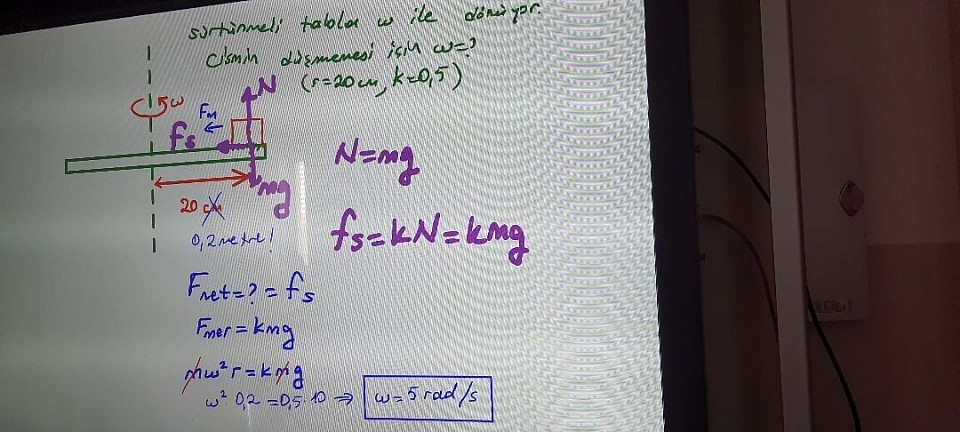 sürtünmeli tabla w ile dönüyor.
Cismin düşmemesi için w=?
(r=20cm, k=0,5)
w
Fm
N
fs
mg
20 cm
0,2 metre!
N=mg
fs=kN=kmg
Fnet=?=fs
Fmer=kmg
mw² r=kmg
w² 0,2 =0,5·10 ⇒ w=5 rad/s